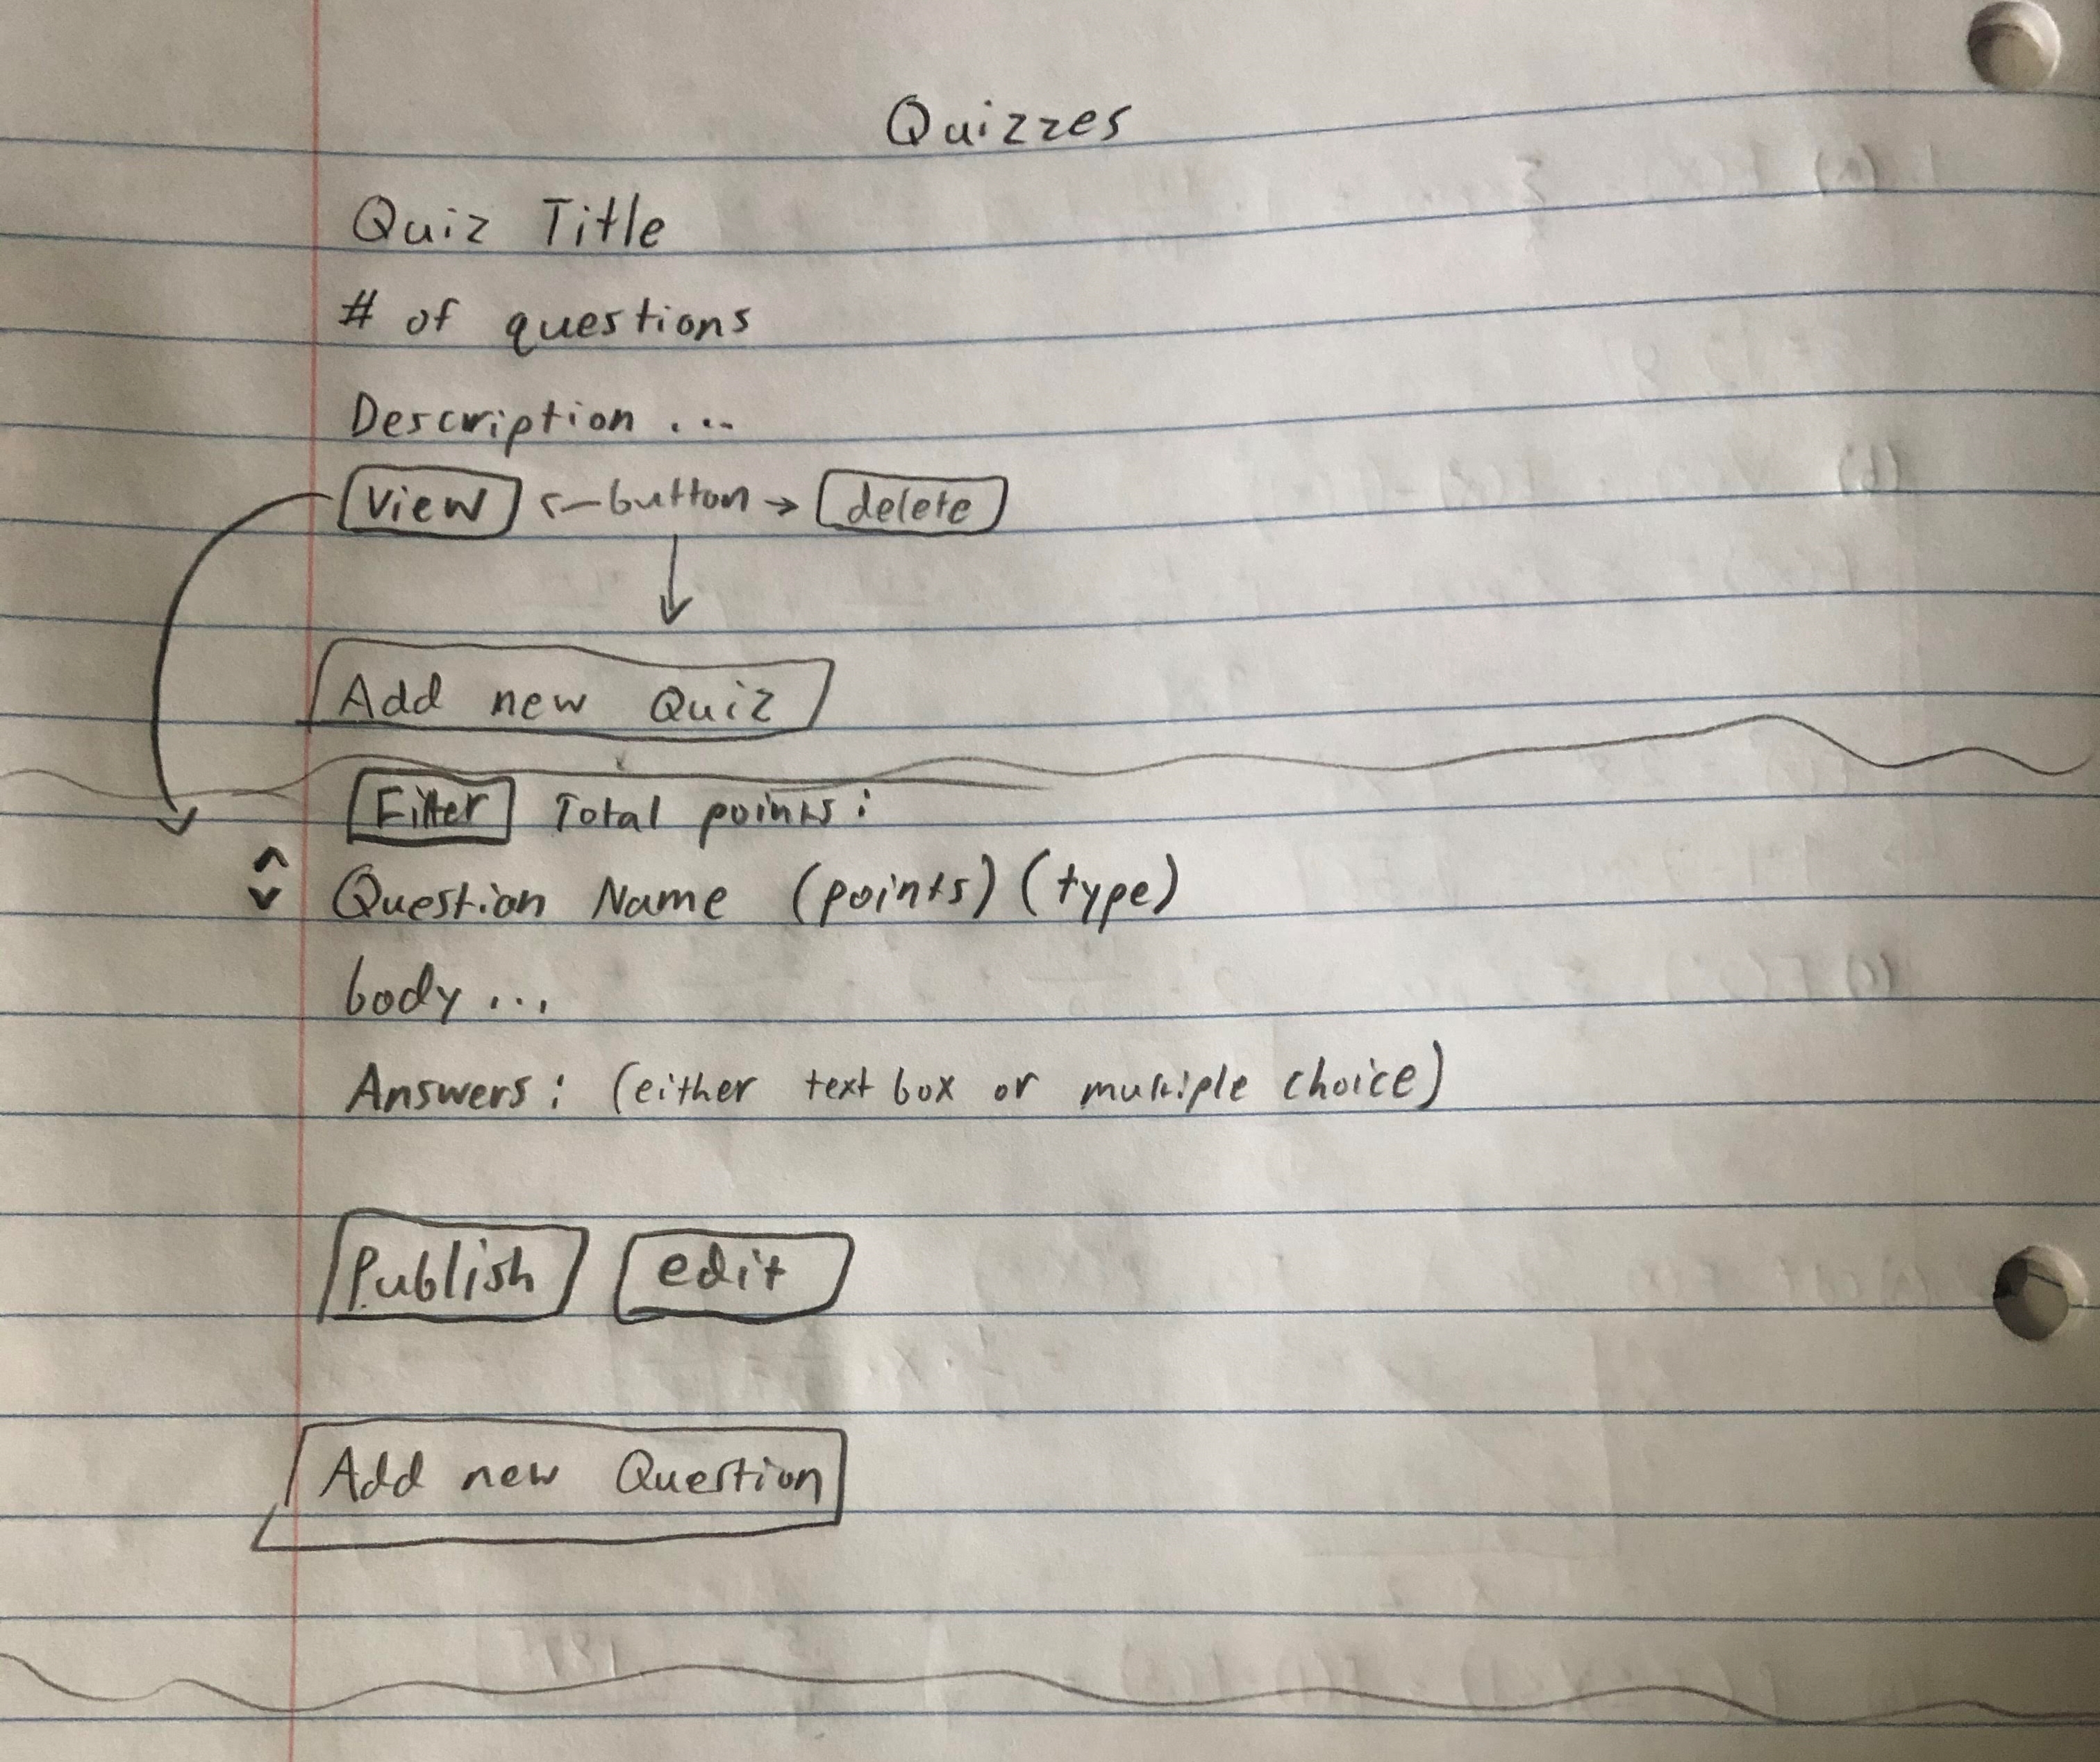 Quizzes
Quiz Title
# of questions
Description ...
View ← button → delete
Add new Quiz
Filter Total points:
Question Name (points) (type)
body ...
Answers: (either text box or multiple choice)
Publish edit
Add new Question